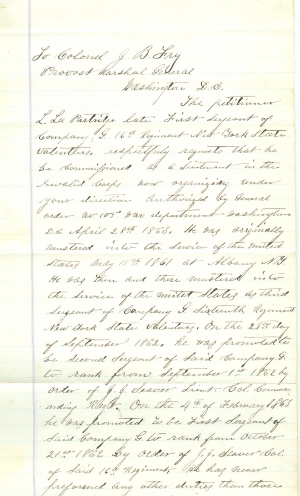 To Colonel J B Fry
Provost Marshal General
Washington D.C.
The petitioner
L. Lee Partridge late First Sergeant of
Company G 16th Regiment New York State
Volenters, respectfuly requests that he
be Commissioned as a Lieutenant in the
Invalid Corps now organizing under
your direction Authorized by General
order No 105 War department Washington
D.C. April 28th 1863. He was originally
mustered into the Service of the United
States May 15th 1861 at Albany N.Y.
He was then and there mustered into
the Service of the United States as third
Sergeant of Company G Sixteenth Regiment
New York State Volenters. On the 25th day
of September 1862, he was promoted to
be Second Sergeant of Said Company G
to rank from September 1st 1862 by
order of J. J. Seaver Lieut. Col. Comm
anding Regt. On the 4th of February 1863
he was promoted to be First Sergeant of
Said Company G to rank from October
21st 1862 by order of J. J. Seaver Col.
of Said 16th Regiment he has never
preformed any other duties than those